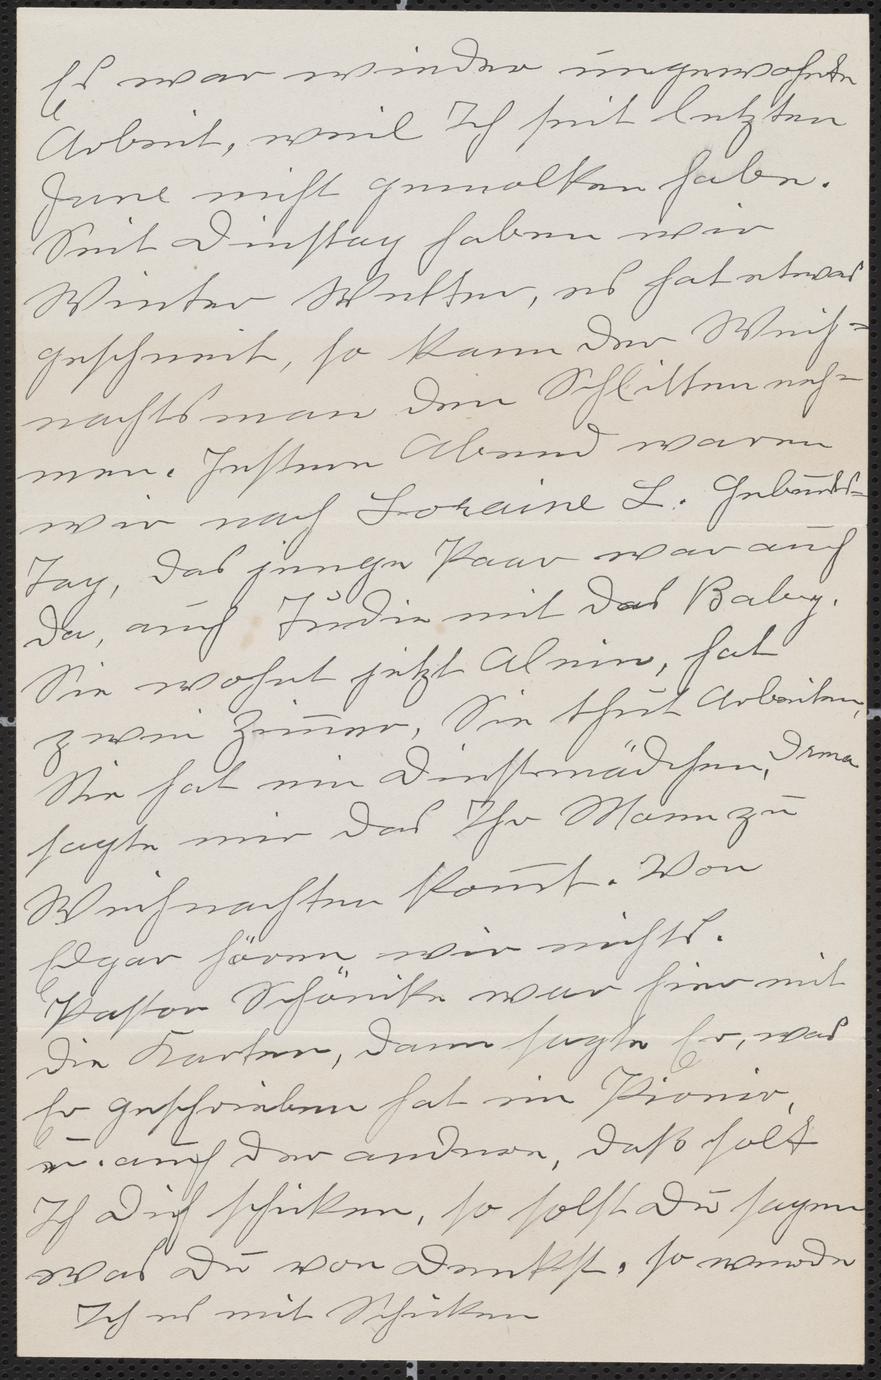 Es war wieder ungewohnte
Arbeit, weil Ich seit letzten
June nicht gemolken habe.
Seit Dinstag haben wir
Winter Wetter, es hat etwas
geschneit, so kann der Weih=
nachtsman den Schlitten neh=
men. Gestern Abend waren
wir nach Loraine L. Gebuds=
Tag, das junge Paar war auch
da, auch Judie mit das Baby.
Sie wohnt jetzt Alein, hat
zwei Zimer, Sie thut Arbeiten,
Sie hat ein Dinstmädchen, Irma
sagte mir das Ihr Mann zu
Weihnachten komt. Von
Edgar hören wir nichts.
Pastor Schönike war hier mit
die Karten, dann sagte Er, was
Er geschrieben hat im Pionir,
u. auch der andere, daß solt
Ich Dich schicken, so solst Du sagen
was Du von Denkst, so werde
Ich es mit Schicken